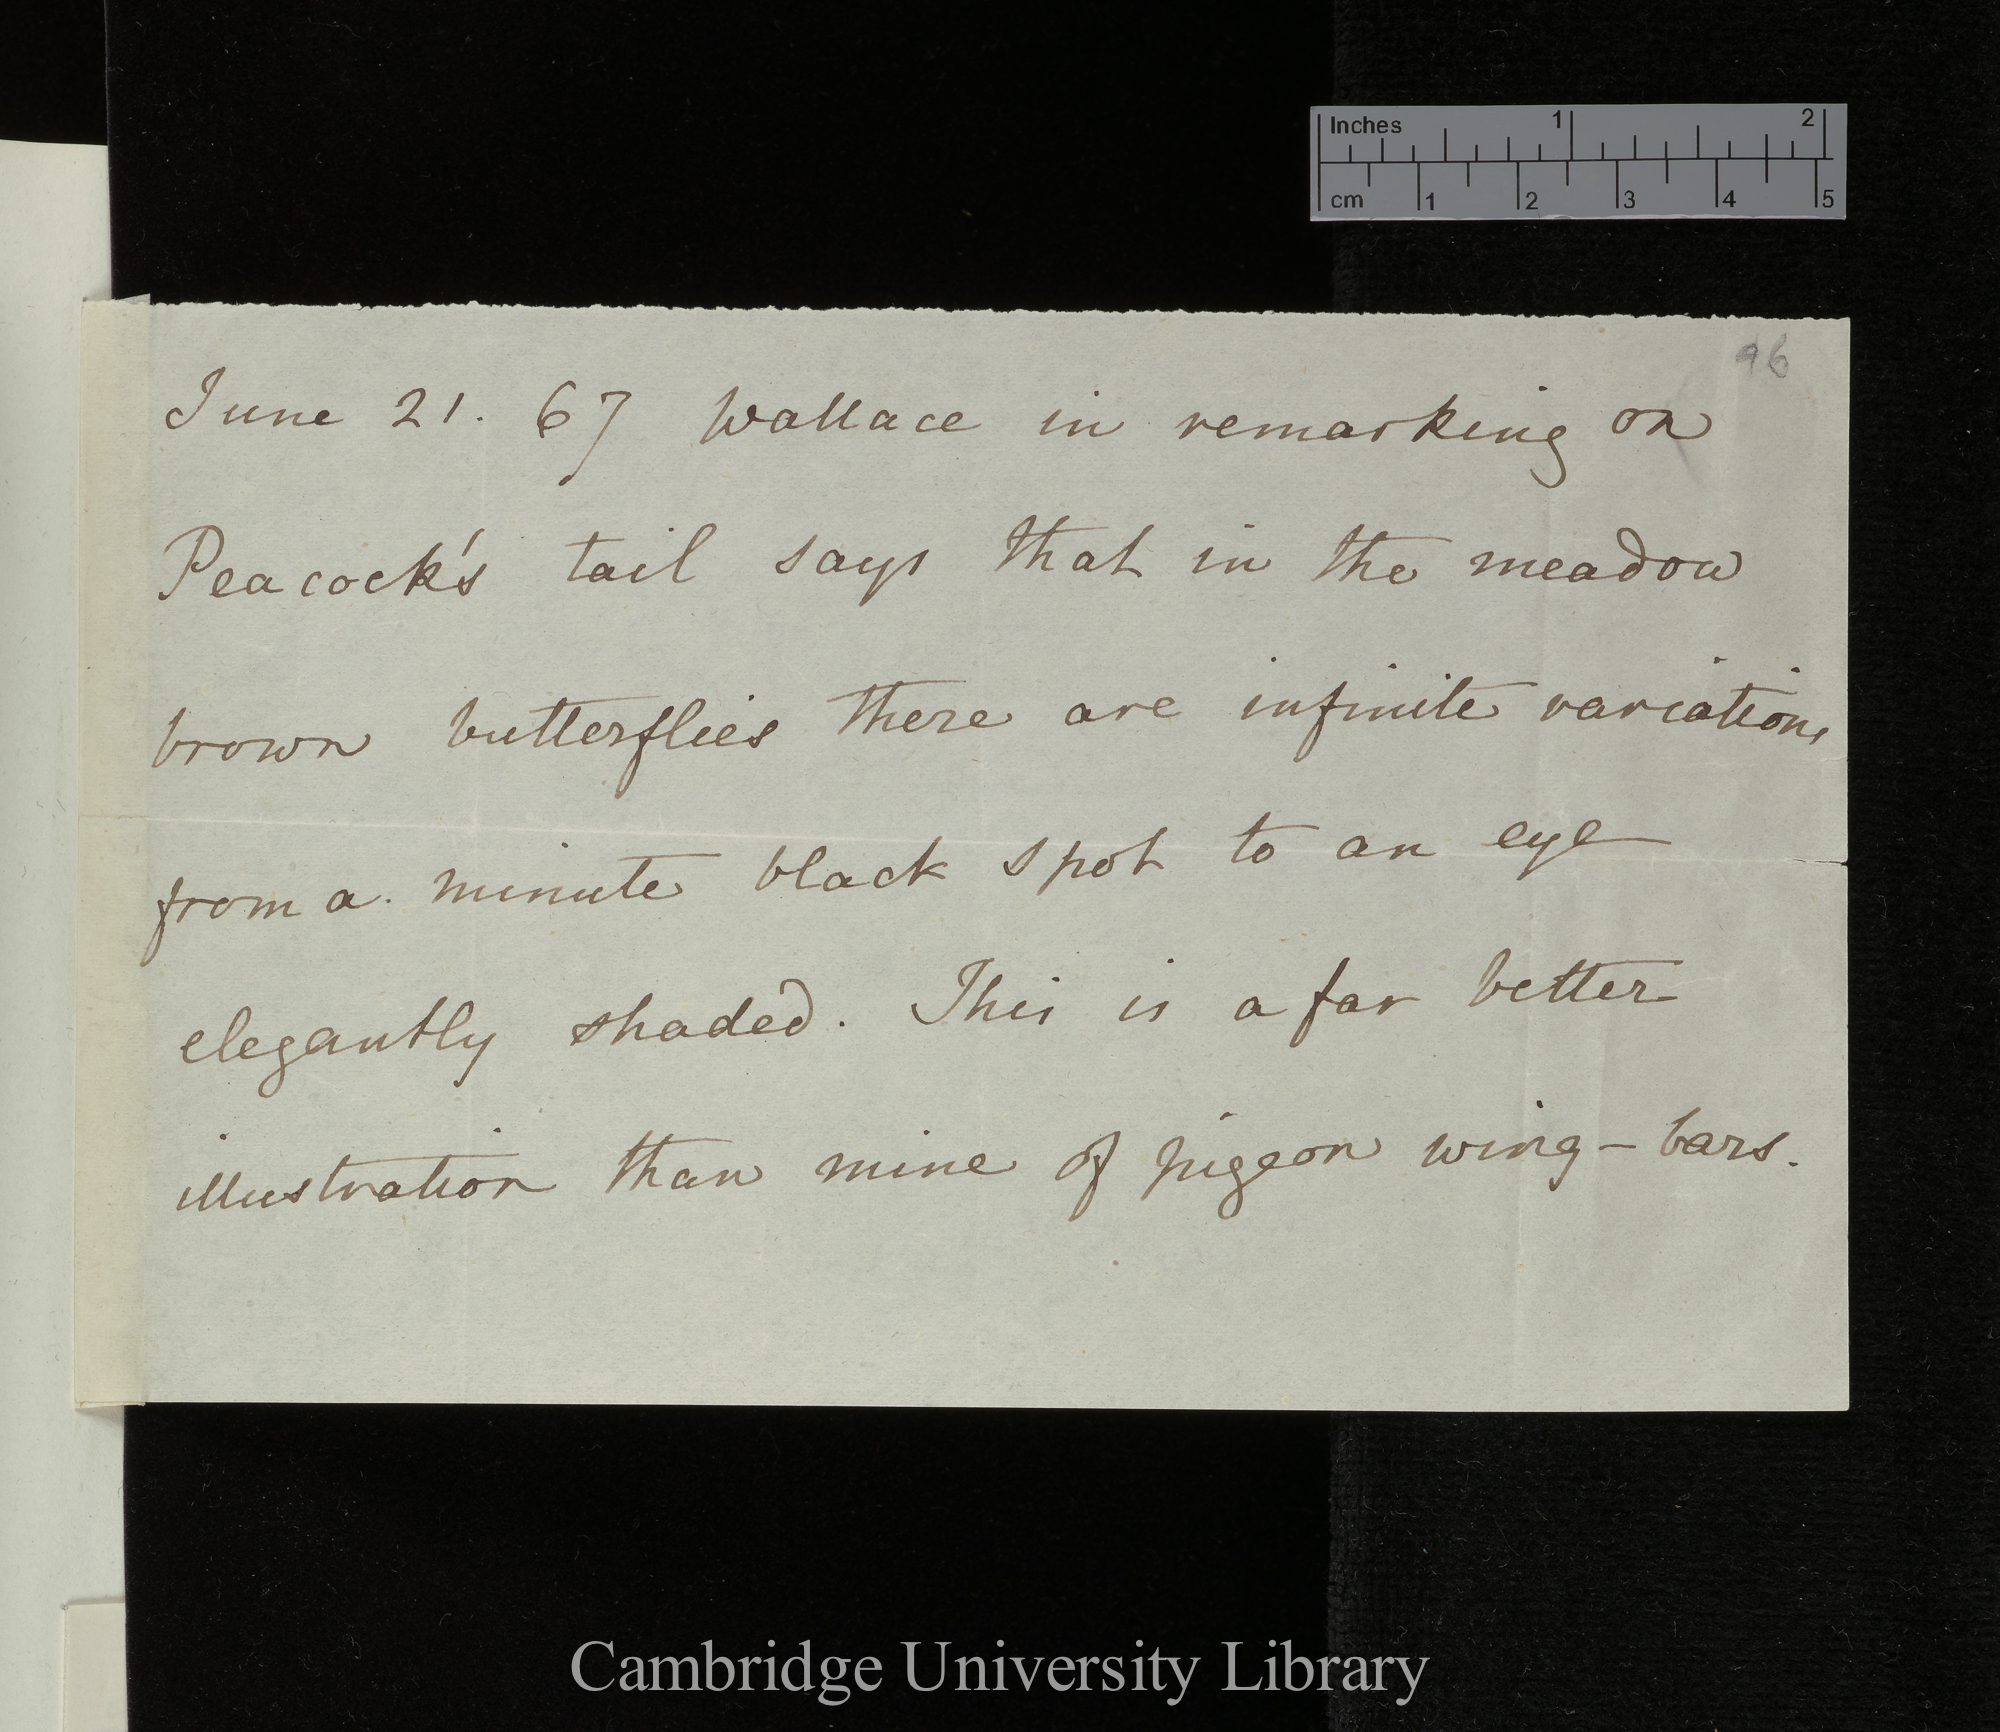 Inches 1 2
cm 1 2 3 4 5
96
June 21. 67 Wallace in remarking on
Peacock's tail says that in the meadow
brown butterflies there are infinite variations
from a. minute black spot to an eye
elegantly shaded. This is a far better
illustration than mine of pigeon wing-bars.
Cambridge University Library